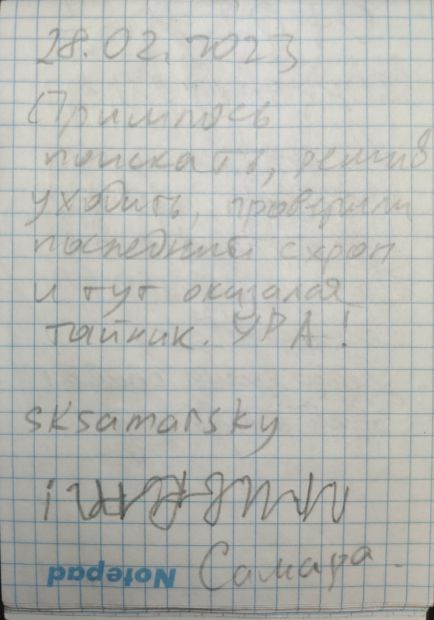 28.02.2023
Пришлось
поискать, решив
уходить, проверили
последний схрон
и тут оказался
тайник. УРА!
sksamarsky
Самара.
Notepad